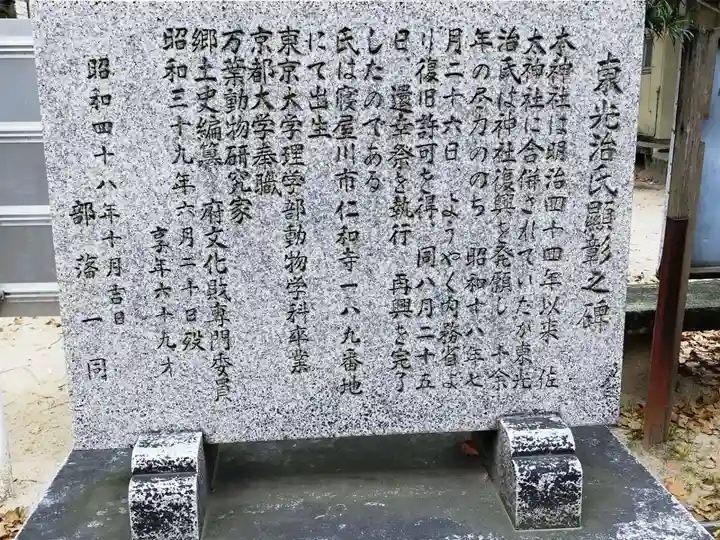 東光治氏顕彰之碑
本神社は明治四十四年以来 佐
太神社に合併されていたが東光
治氏は神社復興を発願し 十余
年の尽力ののち 昭和十八年七
月二十六日 ようやく内務省よ
り復旧許可を得、同八月二十五
日 還幸祭を執行 再興を完了
したのである
氏は寝屋川市仁和寺一八九番地
にて出生
東京大学理学部動物学科卒業
京都大学奉職
万葉動物研究家
郷土史編纂 府文化財専門委員
昭和三十九年六月二十日歿
享年六十九才
昭和四十八年十月吉日
部落一同